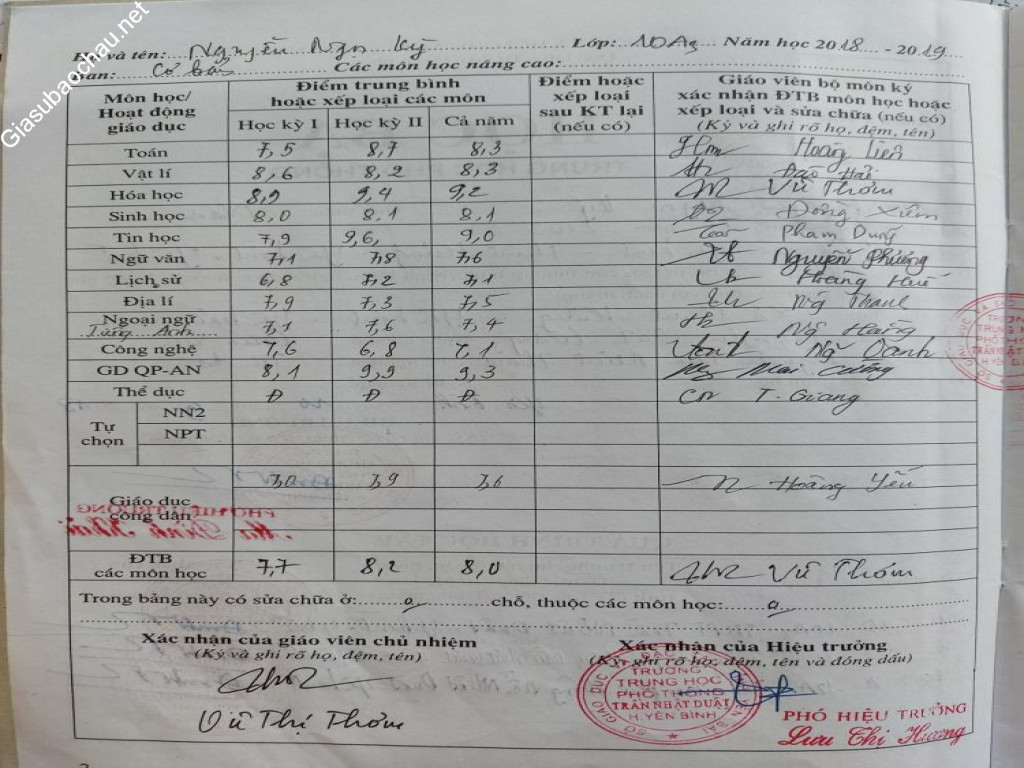 Giasubaochau.net
Họ và tên: Nguyễn Ngọc Kỳ Lớp: 10A Năm học 2018 - 2019
Ban: Cơ bản Các môn học nâng cao:
Môn học/ Hoạt động giáo dục
Điểm trung bình hoặc xếp loại các môn
Học kỳ I Học kỳ II Cả năm
Điểm hoặc xếp loại sau KT lại (nếu có)
Giáo viên bộ môn ký xác nhận ĐTB môn học hoặc xếp loại và sửa chữa (nếu có)
(Ký và ghi rõ họ, đệm, tên)
Toán 7,5 8,7 8,3 Hoàng Liên
Vật lí 8,6 8,2 8,3 Đào Hải
Hóa học 8,9 9,4 9,2 Vũ Thơm
Sinh học 8,0 8,1 8,1 Đồng Xiêm
Tin học 7,9 9,6, 9,0 Phạm Dung
Ngữ văn 7,1 7,8 7,6 Nguyễn Phương
Lịch sử 6,8 7,2 7,1 Hoàng Huế
Địa lí 7,9 7,3 7,5 Ng Thanh
Ngoại ngữ 7,1 7,6 7,4 Ng Hoàng
Tiếng Anh
Công nghệ 7,6 6,8 7,1 Ng Oanh
GD QP-AN 8,1 9,9 9,3 Mai Cường
Thể dục Đ Đ Đ T. Giang
Tự chọn
NN2
NPT
Giáo dục công dân 7,0 7,9 7,6 Hoàng Yến
ĐTB các môn học 7,7 8,2 8,0 Vũ Thơm
Trong bảng này có sửa chữa ở: 0 chỗ, thuộc các môn học: 0
Xác nhận của giáo viên chủ nhiệm
(Ký và ghi rõ họ, đệm, tên)
Vũ Thị Thơm
Xác nhận của Hiệu trưởng
(Ký, ghi rõ họ, đệm, tên và đóng dấu)
TRƯỜNG
TRUNG HỌC
PHỔ THÔNG
TRẦN NHẬT DUẬT
H.YÊN BÌNH
PHÓ HIỆU TRƯỞNG
Lưu Thị Hương